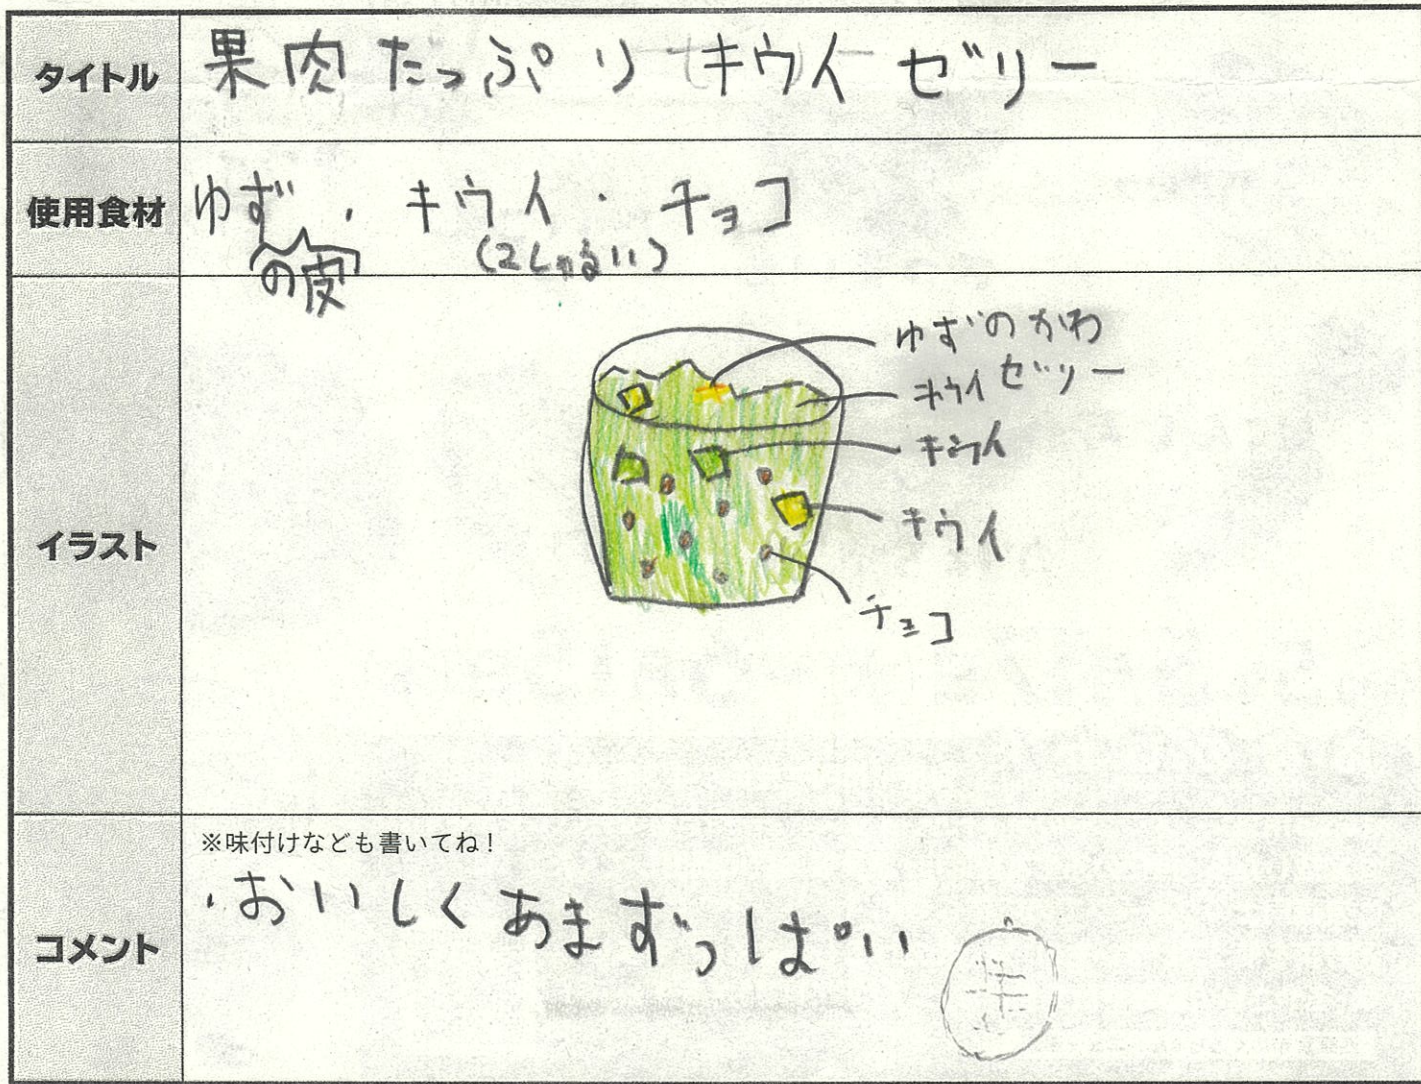 タイトル
果肉たっぷりキウイゼリー
使用食材
ゆず・キウイ・チョコ
の皮
(2しゅるい)
イラスト
ゆずのかわ
キウイゼリー
キウイ
キウイ
チョコ
コメント
※味付けなども書いてね!
・おいしくあまずっぱい